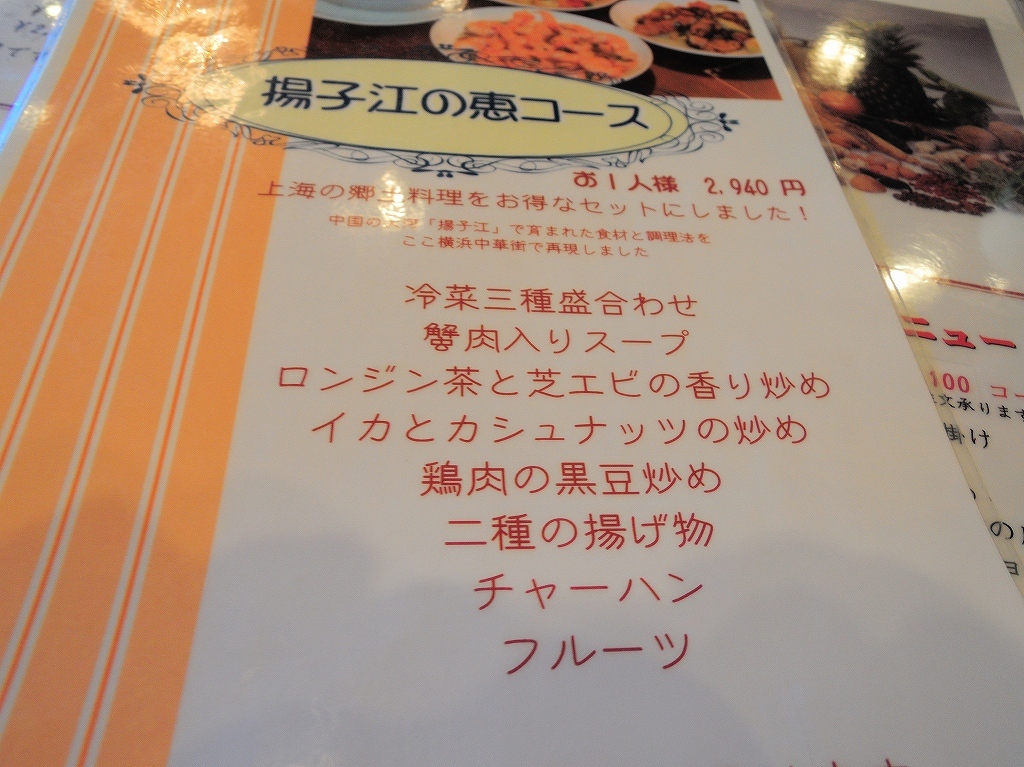 揚子江の恵コース
お1人様 2,940 円
上海の郷土料理をお得なセットにしました！
中国の大河「揚子江」で育まれた食材と調理法を
ここ横浜中華街で再現しました
冷菜三種盛合わせ
蟹肉入りスープ
ロンジン茶と芝エビの香り炒め
イカとカシュナッツの炒め
鶏肉の黒豆炒め
二種の揚げ物
チャーハン
フルーツ
ニュー
100 コー
文承ります
掛け
の